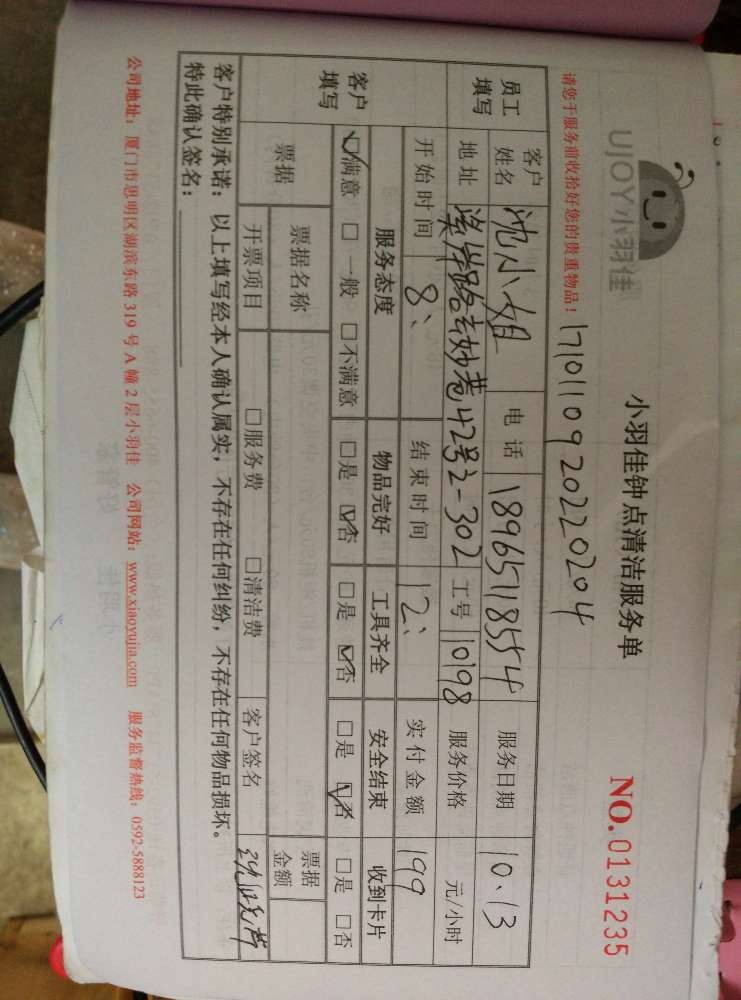 UJOY小羽佳
小羽佳钟点清洁服务单
NO.0131235
请您于服务前收拾好您的贵重物品！
17101109202220204
员工填写 客户姓名 沈小姐 电话 18965118554 服务日期 10.13
地址 42号2-302 工号 10198 服务价格 元/小时
开始时间 8: 结束时间 12: 实付金额 199
客户填写 服务态度 物品完好 工具齐全 安全结束 收到卡片
☑满意 □一般 □不满意 □是 ☑否 □是 ☑否 □是 ☑否 □是 □否
票据 票据名称 票据金额
开票项目 □服务费 □清洁费 客户签名
客户特别承诺：以上填写经本人确认属实，不存在任何纠纷，不存在任何物品损坏。
特此确认签名：
公司地址：厦门市思明区湖滨东路319号A幢2层小羽佳 公司网站：www.xiaoyujia.com 服务监督热线：0592-5888123